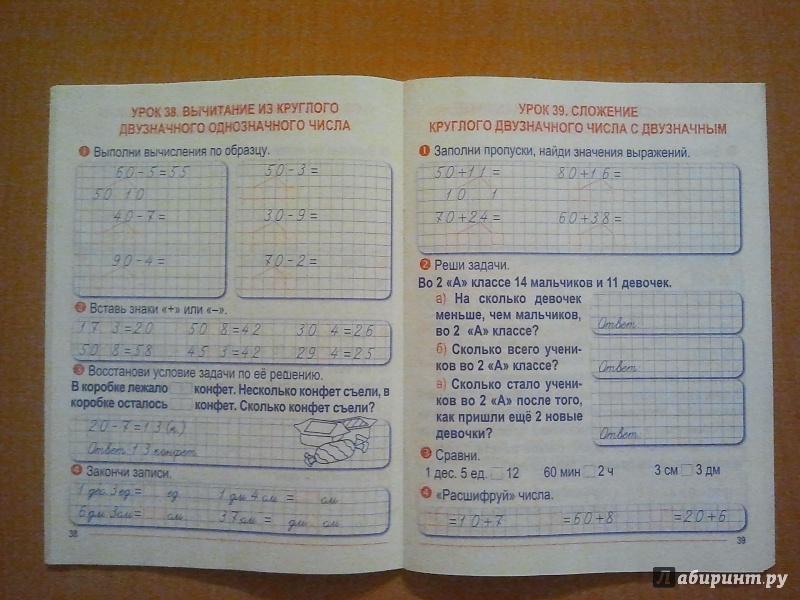 УРОК 38. ВЫЧИТАНИЕ ИЗ КРУГЛОГО
ДВУЗНАЧНОГО ОДНОЗНАЧНОГО ЧИСЛА
1 Выполни вычисления по образцу.
60-5=55 50-3=
50 10
40-7= 30-9=
90-4= 70-2=
2 Вставь знаки «+» или «–».
17 3=20 50 8=42 30 4=26
50 8=58 45 3=42 29 4=25
3 Восстанови условие задачи по её решению.
В коробке лежало конфет. Несколько конфет съели, в
коробке осталось конфет. Сколько конфет съели?
20-7=13(к.)
Ответ: 13 конфет.
4 Закончи записи.
1 дес. 3 ед.= ед. 1 дм 4 см = см
6 дм 3 см= см 37 см = дм см
38
УРОК 39. СЛОЖЕНИЕ
КРУГЛОГО ДВУЗНАЧНОГО ЧИСЛА С ДВУЗНАЧНЫМ
1 Заполни пропуски, найди значения выражений.
50+11= 80+16=
10 1
70+24= 60+38=
2 Реши задачи.
Во 2 «А» классе 14 мальчиков и 11 девочек.
а) На сколько девочек
меньше, чем мальчиков,
во 2 «А» классе?
Ответ:
б) Сколько всего учени-
ков во 2 «А» классе?
Ответ:
в) Сколько стало учени-
ков во 2 «А» после того,
как пришли ещё 2 новые
девочки?
Ответ:
3 Сравни.
1 дес. 5 ед. 12 60 мин 2 ч 3 см 3 дм
4 «Расшифруй» числа.
=10+7 =60+8 =20+6
39
Лабиринт.ру